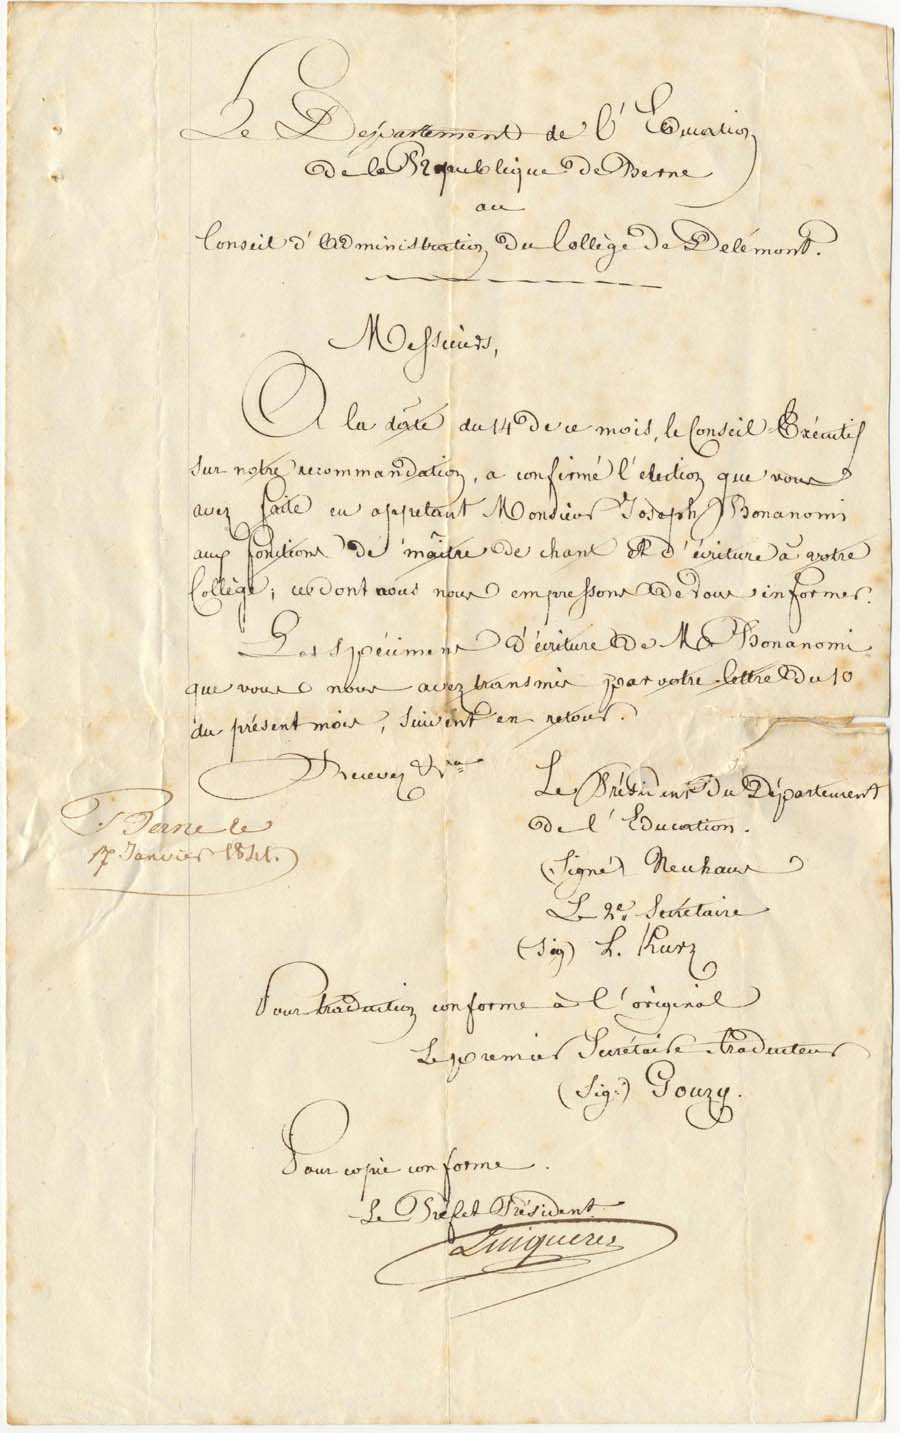 Le Département de l'Education
de la République de Berne
au
Conseil d'Administration du Collège de Delémont.
Messieurs,
A la date du 14 de ce mois, le Conseil Exécutif
sur notre recommandation, a confirmé l'élection que vous
avez faite en appelant Monsieur Joseph Bonanomi
aux fonctions de maître de chant et d'écriture à votre
Collège; ce dont nous nous empressons de vous informer.
Les spécimens d'écriture de Mr Bonanomi
que vous nous avez transmis par votre lettre du 10
du présent mois, suivent en retour.
Recevez &
Le Président du Département
de l'Education.
Berne le
17 Janvier 1841.
(Signé) Neuhaus
Le 2e. Secrétaire
(Sig) L. Kurz
Pour traduction conforme à l'original
Le premier Secrétaire traducteur
(Sig.) Gouzy.
Pour copie conforme.
Le Préfet Président
Quiquerez